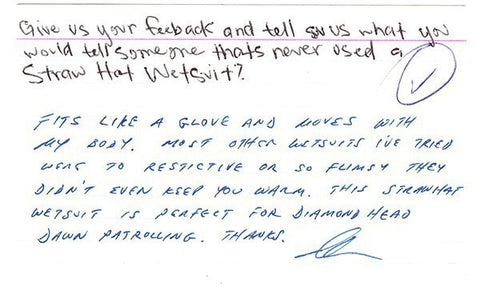 Give us your feeback and tell us what you
would tell someone thats never used a
Straw Hat Wetsuit?
FITS LIKE A GLOVE AND MOVES WITH
MY BODY. MOST OTHER WETSUITS I'VE TRIED
WERE TO RESTICTIVE OR SO FLIMSY THEY
DIDN'T EVEN KEEP YOU WARM. THIS STRAWHAT
WETSUIT IS PERFECT FOR DIAMOND HEAD
DAWN PATROLLING. THANKS.